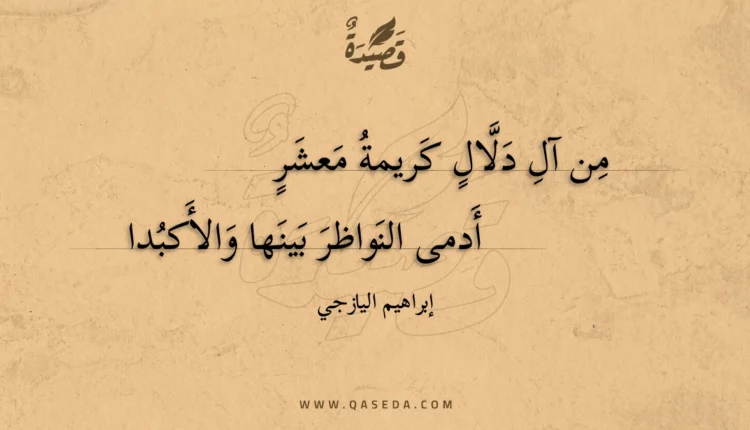 قَصِيْدَةٌ
مِن آلِ دَلَّالٍ كَريمةُ مَعشَرٍ
أَدمى النَواظرَ بَينَها وَالأَكبُدا
إبراهيم اليازجي
WWW.QASEDA.COM